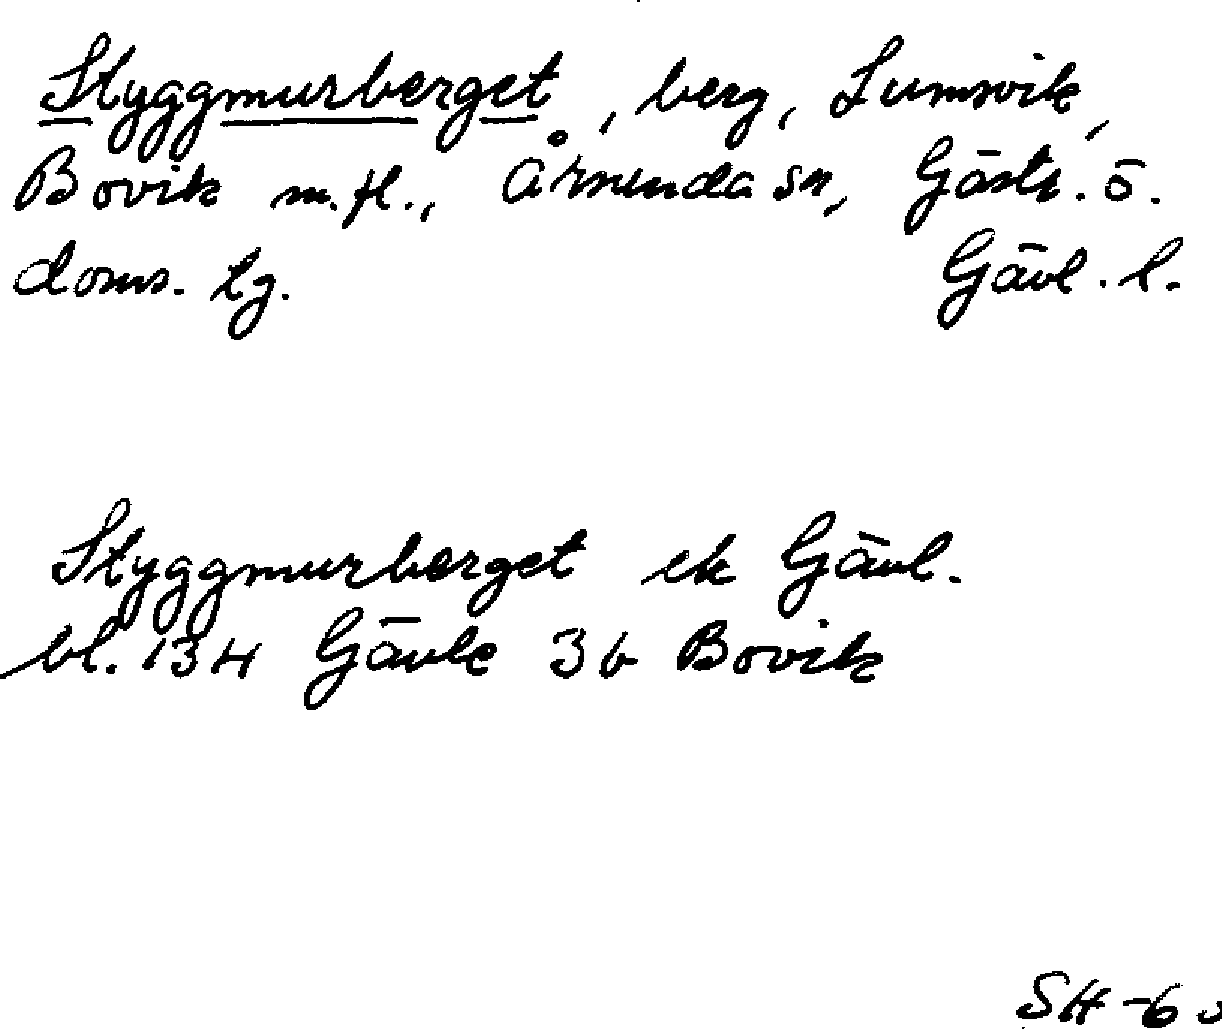 Styggmurberget, berg, Lumsvik,
Bovik m.fl., Årsunda sn, Gästr. ö.
doms. tg. Gävl. l.
Styggmurberget ek Gävl.
bl. 134 Gävle 3b Bovik
SH -6